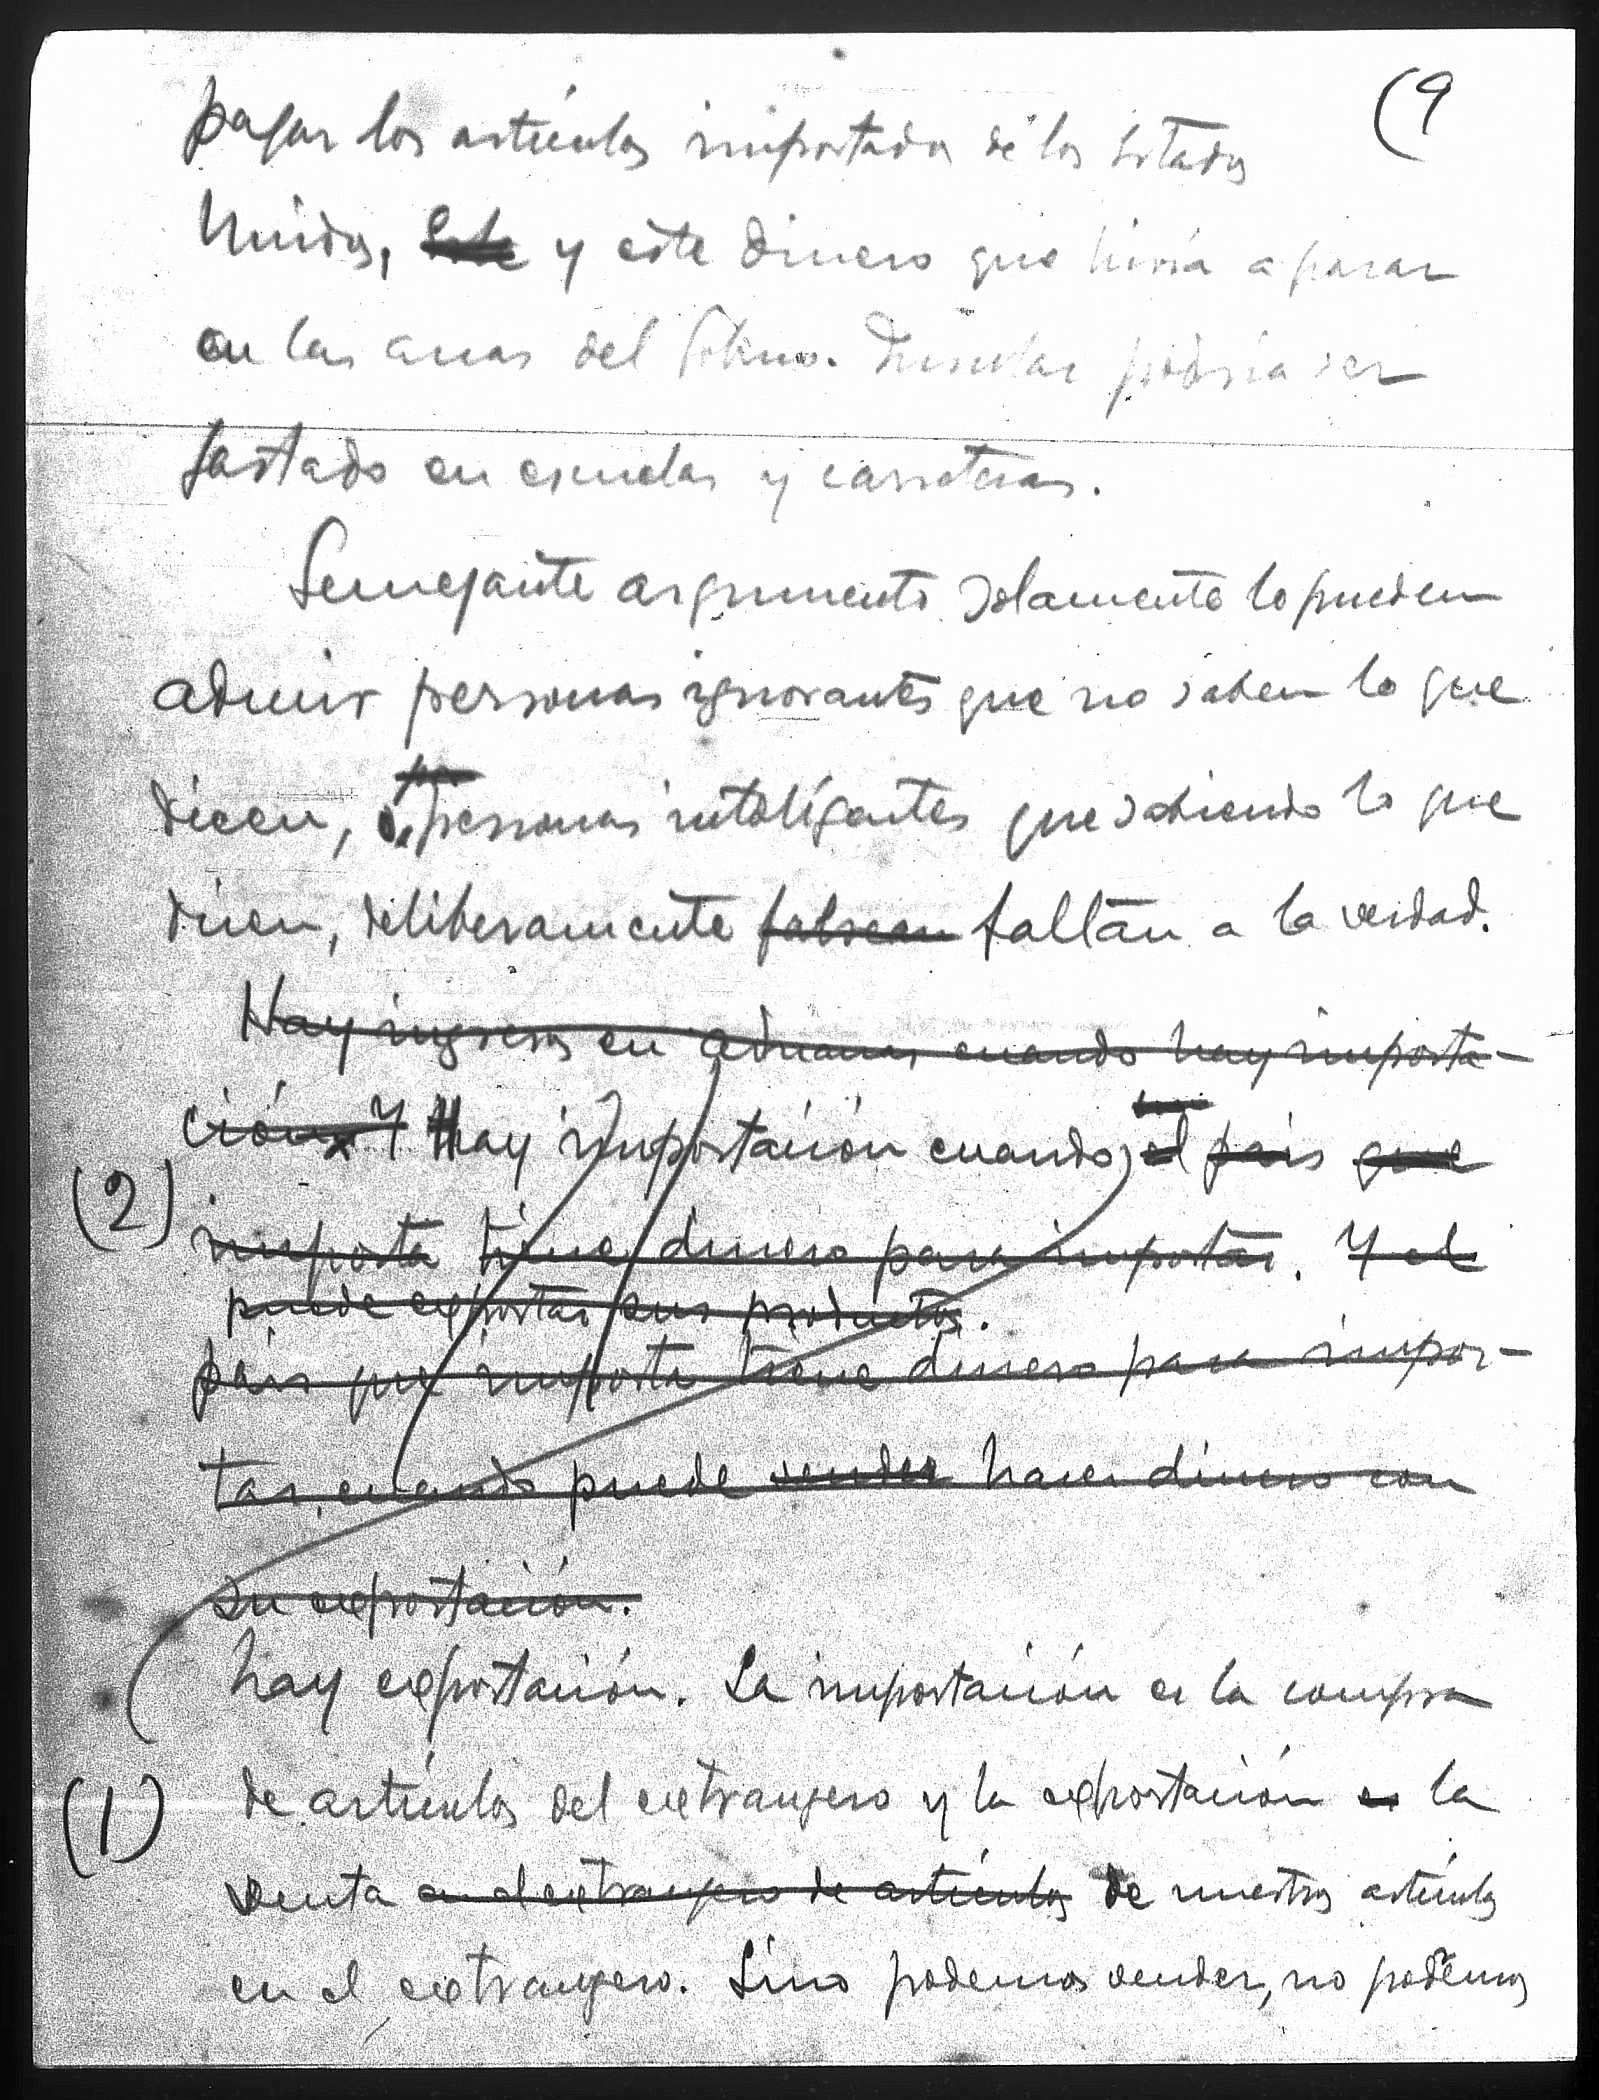 (9
pagar los artículos importados de los Estados
Unidos, Este y este dinero que hiría a parar
en las arcas del Gobno. Insular podría ser
gastado en escuelas y carreteras.
Semejante argumento solamente lo pueden
aducir personas ignorantes que no saben lo que
dicen, o por personas inteligentes que sabiendo lo que
dicen, deliberamente falsean faltan a la verdad.
Hay ingresos en aduanas, cuando hay importa-
ción. Y Hay importación cuando, el país que
(2)
importa tiene dinero para importar. Y el
puede exportar sus productos.
país que importa tiene dinero para impor-
tar, cuando puede vender hacer dinero con
su exportación.
hay exportación. La importación es la compra
(1) de artículos del extrangero y la exportación es la
venta en el extrangero de artículos de nuestros artículos
en el extrangero. Sino podemos vender, no podemos